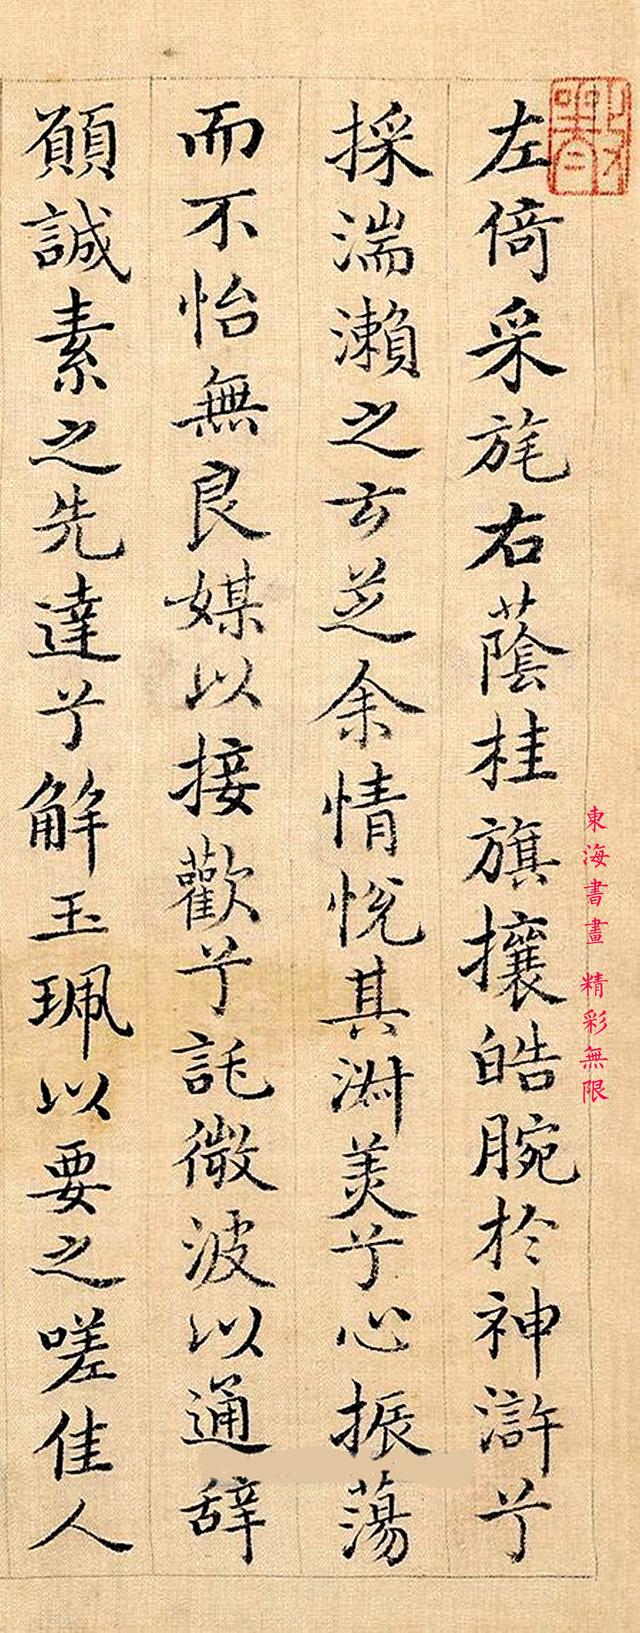 左倚采旄右蔭桂旗攘皓腕於神滸兮
採湍瀨之玄芝余情悅其淑美兮心振蕩
而不怡無良媒以接歡兮託微波以通辭
願誠素之先達兮解玉珮以要之嗟佳人
東海書畫 精彩無限